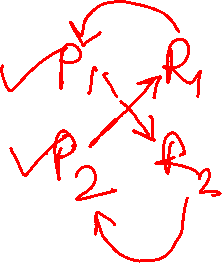 P1 R1
P2 R2